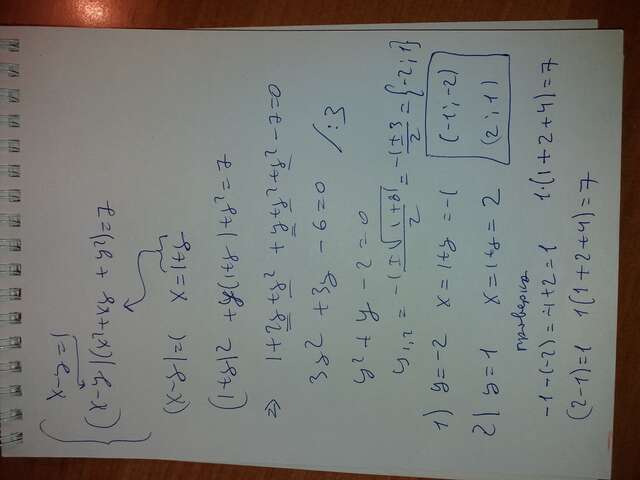 x-y=1
(x-y)(x²+xy+y²)=7
(x-y)=1 x=1+y
(1+y)²+y(1+y)+y²=7
⇒ 1+2y+y²+y+y²+y²-7=0
3y²+3y-6=0 /:3
y²+y-2=0
y₁,₂ = (-1±√(1+8))/2 = (-1±3)/2 = {-2; 1}
1) y=-2 x=1+y=-1 (-1; -2)
2) y=1 x=1+y=2 (2; 1)
проверка
-1-(-2)=-1+2=1 1·(1+2+4)=7
(2-1)=1 1(1+2+4)=7